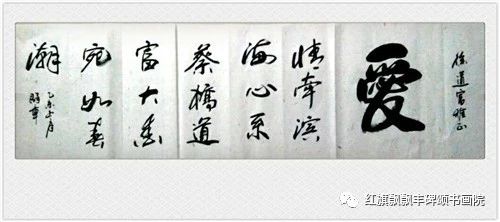 徐道富雅正
愛
情牵滨
海心系
蔡橋道
富大爱
宛如春
潮
乙未七月
红旗飘飘丰碑颂书画院